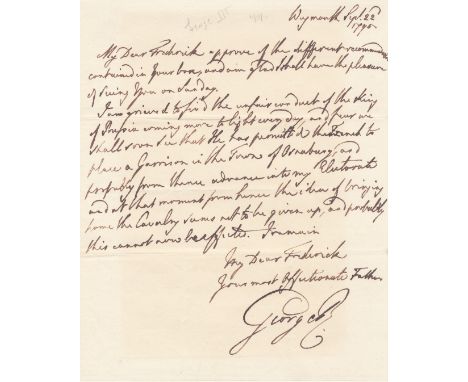 George III
Weymouth Sept. 22d
1795
My Dear Frederick approve of the different recommen
contained in Your box, and am glad I shall have the pleasure
of seeing You on Sunday.
I am grieved to find the unfair conduct of the King
of Prussia coming more to light every day, and fear we
shall soon see that He has permitted the French to
place a Garrison in the Town of Osnaburg, and
probably from thence advance into my Electorate
and at that moment from hence the idea of bringing
home the Cavalry seems not to be given up, and probably
this cannot now be effected. I remain
My Dear Frederick
Your most Affectionate Father
George R